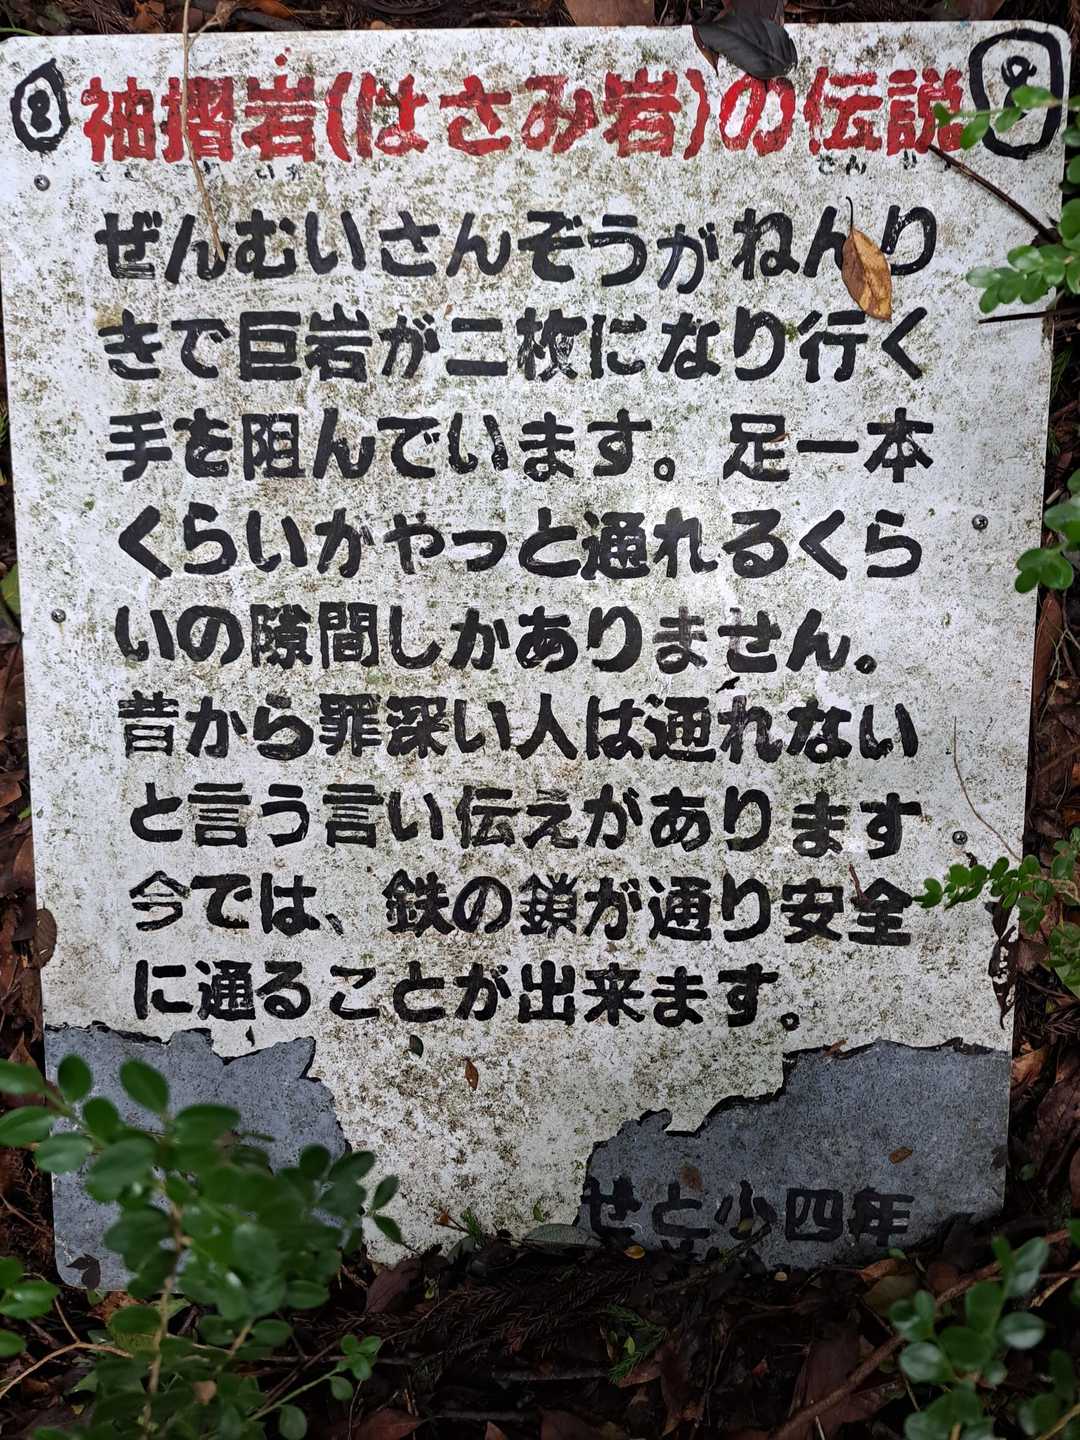 袖摺岩(はさみ岩)の伝説
ぜんむいさんぞうがねんり
きで巨岩が二枚になり行く
手を阻んでいます。足一本
くらいがやっと通れるくら
いの隙間しかありません。
昔から罪深い人は通れない
と言う言い伝えがあります
今では、鉄の鎖が通り安全
に通ることが出来ます。
せと小四年